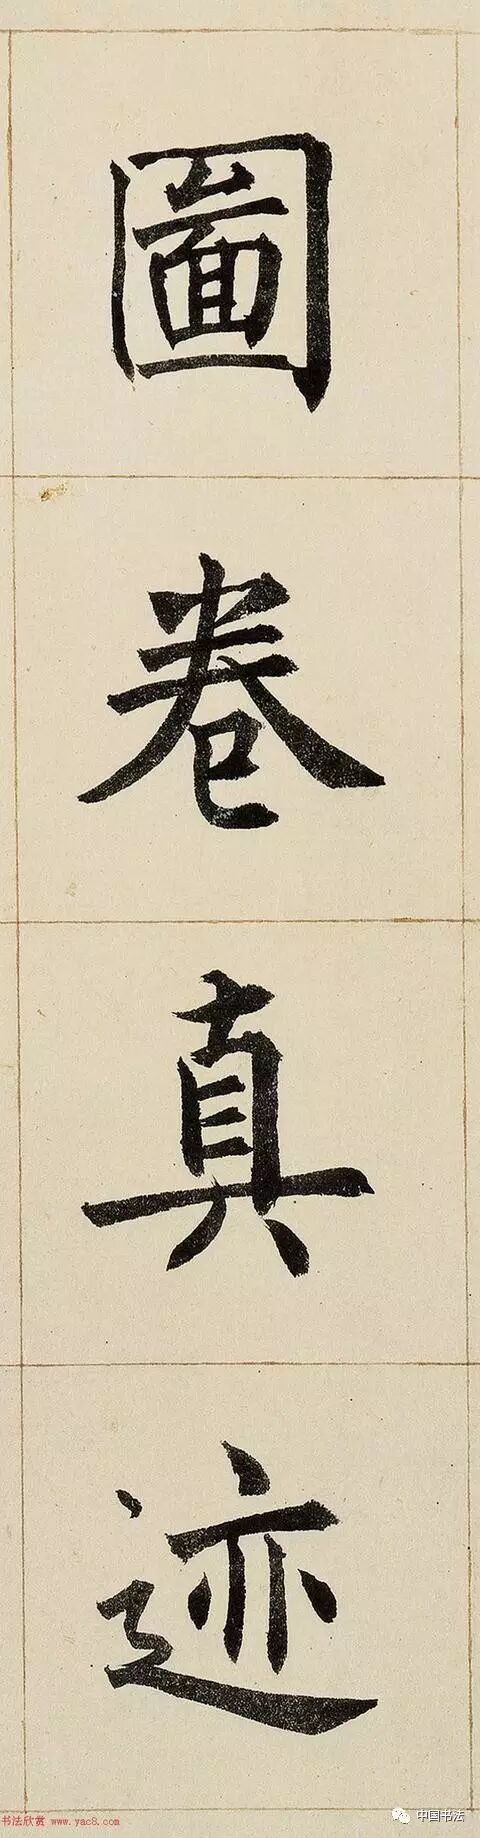 圖
卷
真
迹
书法欣赏 www.yac8.com
中国书法